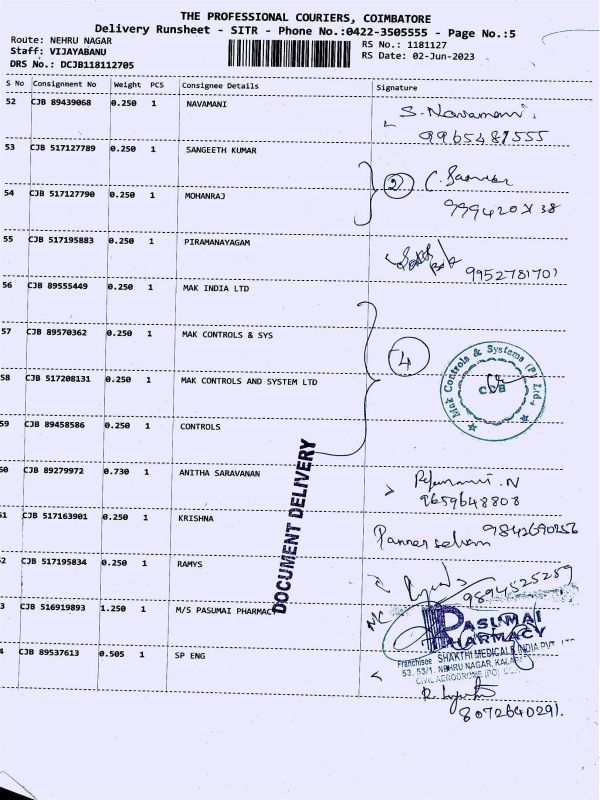 THE PROFESSIONAL COURIERS, COIMBATORE
Delivery Runsheet - SITR - Phone No.:0422-3505555 - Page No.:5
Route: NEHRU NAGAR
Staff: VIJAYABANU
DRS No.: DCJB118112705
RS No.: 1181127
RS Date: 02-Jun-2023
S No Consignment No Weight PCS Consignee Details Signature
52 CJB 89439068 0.250 1 NAVAMANI S. Navamani.
9965481555
53 CJB 517127789 0.250 1 SANGEETH KUMAR
2
54 CJB 517127790 0.250 1 MOHANRAJ
55 CJB 517195883 0.250 1 PIRAMANAYAGAM
9952781701
56 CJB 89555449 0.250 1 MAK INDIA LTD
57 CJB 89570362 0.250 1 MAK CONTROLS & SYS
4
Mak Controls & Systems (P) Ltd.
CJB
58 CJB 517208131 0.250 1 MAK CONTROLS AND SYSTEM LTD
59 CJB 89458586 0.250 1 CONTROLS
DOCUMENT DELIVERY
60 CJB 89279972 0.730 1 ANITHA SARAVANAN
9659648808
61 CJB 517163901 0.250 1 KRISHNA
9842690256
Panner selvam
62 CJB 517195834 0.250 1 RAMYS
9894525289
63 CJB 516919893 1.250 1 M/S PASUMAI PHARMACY
PASUMAI
PHARMACY
Franchisee SHAKTHI MEDICALS INDIA PVT LTD
53, 53/1, NEHRU NAGAR,
CIVIL AERODROME (PO)
64 CJB 89537613 0.505 1 SP ENG
8072640291.